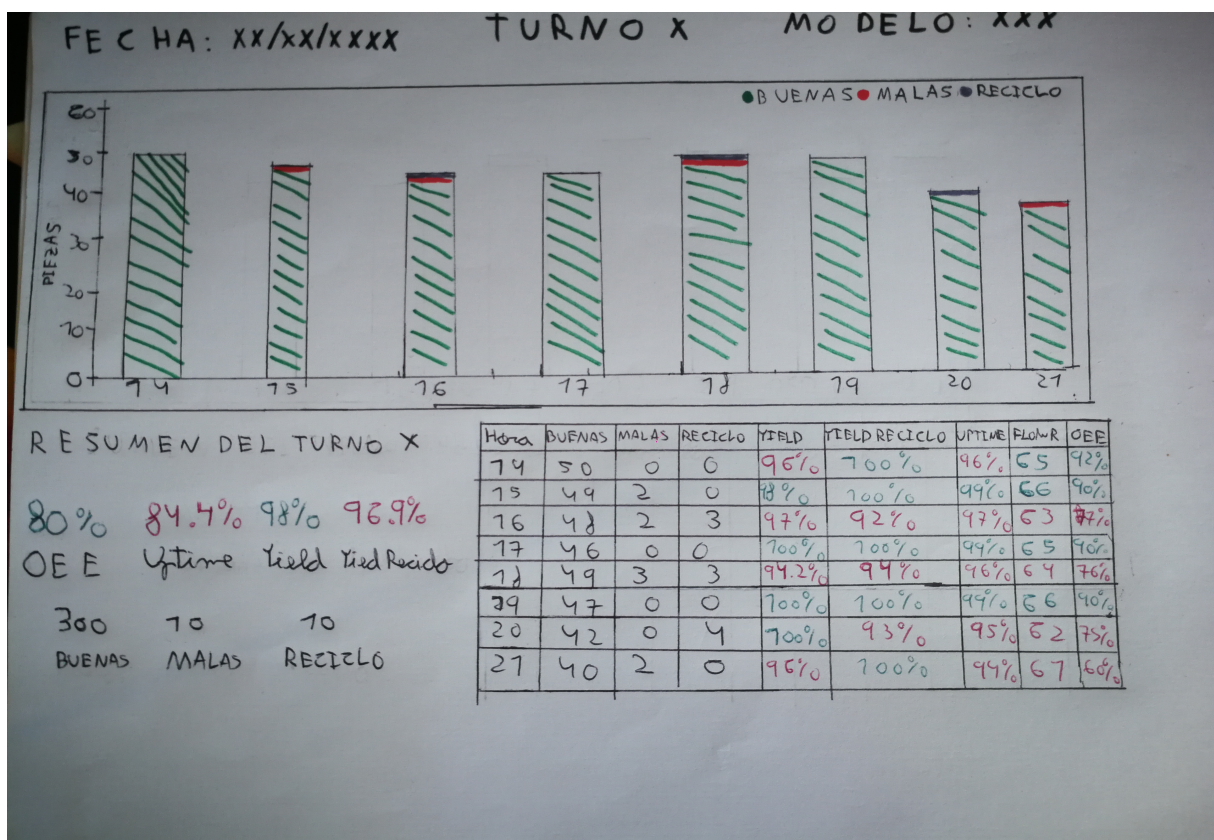 FECHA: XX/XX/XXXX TURNO X MODELO: XXX
●BUENAS ●MALAS ●RECICLO
PIEZAS
60
50
40
30
20
10
0
14 15 16 17 18 19 20 21
RESUMEN DEL TURNO X
80% 84.4% 98% 96.9%
OEE Uptime Yield Yied Reciclo
300 10 10
BUENAS MALAS RECICLO
Hora BUENAS MALAS RECICLO YIELD YIELD RECICLO UPTIME FLOWR OEE
14 50 0 0 96% 100% 96% 65 92%
15 49 2 0 98% 100% 99% 66 90%
16 48 2 3 97% 92% 97% 63 77%
17 46 0 0 100% 100% 99% 65 90%
18 49 3 3 94.2% 94% 96% 64 76%
19 47 0 0 100% 100% 99% 66 90%
20 42 0 4 100% 93% 95% 62 75%
21 40 2 0 96% 100% 94% 61 60%